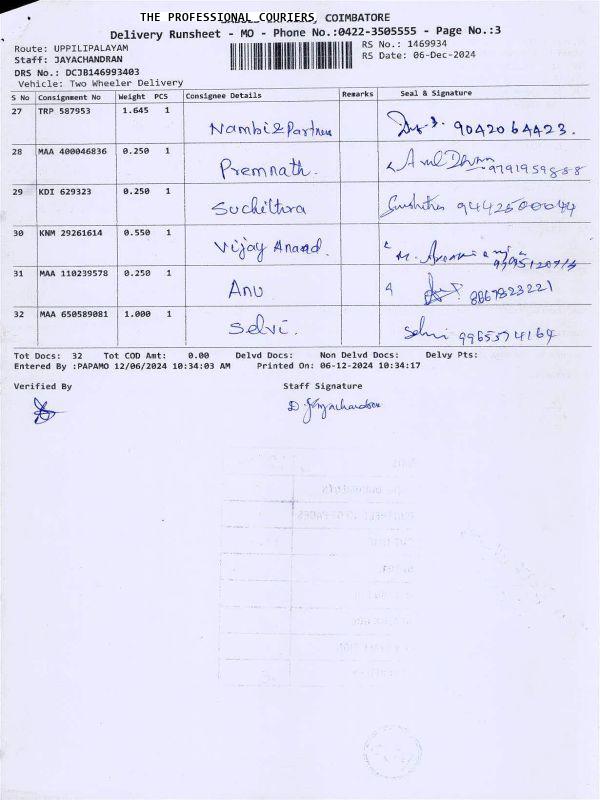 THE PROFESSIONAL COURIERS, COIMBATORE
Delivery Runsheet - MO - Phone No.:0422-3505555 - Page No.:3
Route: UPPILIPALAYAM
RS No.: 1469934
Staff: JAYACHANDRAN
RS Date: 06-Dec-2024
DRS No.: DCJB146993403
Vehicle: Two Wheeler Delivery
S No Consignment No Weight PCS Consignee Details Remarks Seal & Signature
27 TRP 587953 1.645 1 Nambi & Partners 9042064423.
28 MAA 400046836 0.250 1 Premnath. 9791959888
29 KDI 629323 0.250 1 Suchithra 9442500044
30 KNM 29261614 0.550 1 Vijay Anand.
31 MAA 110239578 0.250 1 Anu 8867823221
32 MAA 650589081 1.000 1 Selvi. Selvi 9965574164
Tot Docs: 32 Tot COD Amt: 0.00 Delvd Docs: Non Delvd Docs: Delvy Pts:
Entered By :PAPAMO 12/06/2024 10:34:03 AM Printed On: 06-12-2024 10:34:17
Verified By Staff Signature
D. Jayachandran